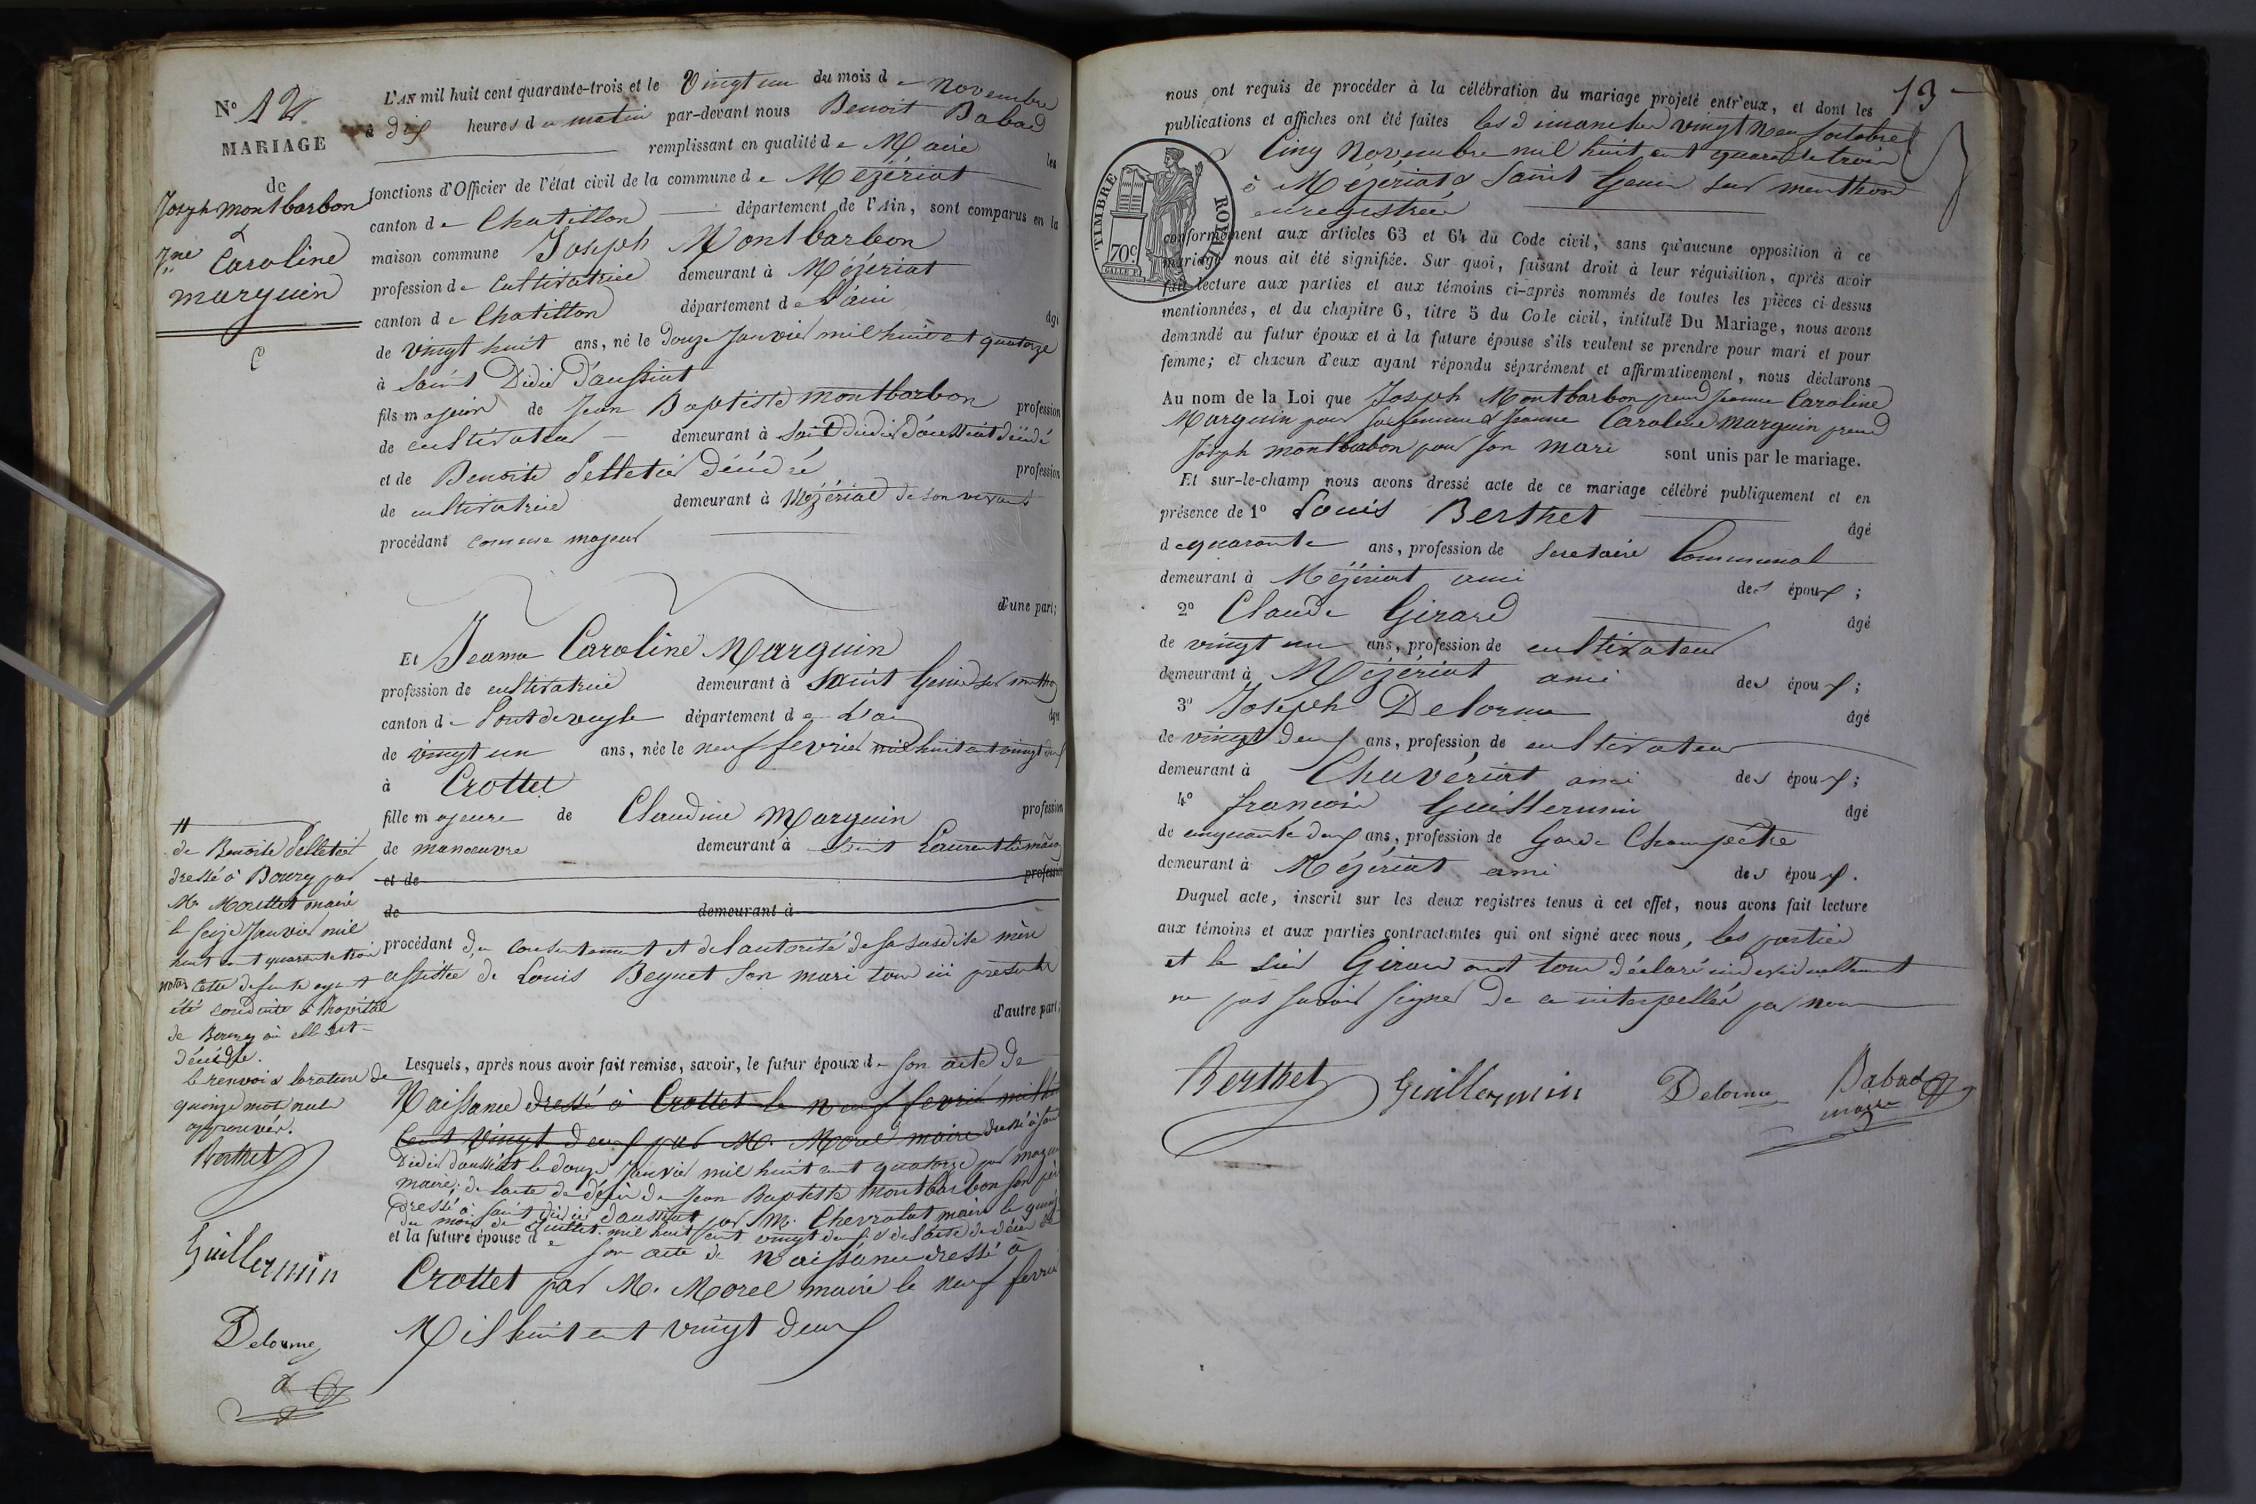 N° 12
MARIAGE
de
Joseph Montbarbon
&
Jne Caroline
Marguin
L'AN mil huit cent quarante-trois et le Vingt un du mois de Novembre
à dix heures du matin par-devant nous Benoit Babad
remplissant en qualité de Maire les
fonctions d'Officier de l'état civil de la commune de Mézériat
canton de Chatillon département de l'Ain, sont comparus en la
maison commune Joseph Montbarbon
profession de Cultivatrice demeurant à Mézériat
canton de Chatillon département de l'ain âgé
de vingt huit ans, né le Douze Janvier mil huit cent quatorze
à Saint Didier d'aussiat
fils majeur de Jean Baptiste Montbarbon profession
de cultivateur demeurant à Saint Didier d'aussiat décédé
et de Benoite Pelletier décédé profession
de cultivatrice demeurant à Mézériat de son vivant
procédant comme majeur
d'une part;
Et Jeanne Caroline Marguin
profession de cultivatrice demeurant à Saint Genis sur menthon
canton de Pont de veyle département de L'ain âgée
de vingt un ans, née le neuf fevrier mil huit cent vingt deux
à Crottet
fille majeure de Claudine Marguin profession
de manoeuvre demeurant à Saint Laurent
et de profession
de demeurant à
procédant du consentement et de l'autorité de sa susdite mère
assistée de Louis Beynet son mari tous ici présents
d'autre part;
Lesquels, après nous avoir fait remise, savoir, le futur époux de son acte de
Naissance dressé à Crottet le neuf fevrier mil huit
Cent Vingt deux par M. Morel maire dressé à Saint
Didier d'aussiat le douze Janvier mil huit cent quatorze par
maire; de l'acte de décès de Jean Baptiste Montbarbon son père
dressé à Saint didier d'aussiat par M. Chevrolat maire le quinze
du mois de Juillet mil huit cent vingt deux & de l'acte de décès de
et la future épouse de son acte de Naissance dressé à
Crottet par M. Morel maire le neuf fevrier
Mil huit cent vingt deux
#
de Benoite Pelletier
dressé à Bourg par
Mr Morellet maire
le seize Janvier mil
huit cent quarante trois
nota Cette defunte ayant
été conduite à l'hopital
de Bourg où elle est
décédée.
le renvoi & la rature de
quinze mots nuls
approuvés.
Berthet
Guillermin
Delorme
13
nous ont requis de procéder à la célébration du mariage projeté entr'eux, et dont les
publications et affiches ont été faites les dimanches vingt Neuf octobre &
Cinq Novembre mil huit cent quarante trois
à Mézériat & Saint Genis sur menthon
enregistrée
TIMBRE ROYAL
70c
conformément aux articles 63 et 64 du Code civil, sans qu'aucune opposition à ce
mariage nous ait été signifiée. Sur quoi, faisant droit à leur réquisition, après avoir
fait lecture aux parties et aux témoins ci-après nommés de toutes les pièces ci-dessus
mentionnées, et du chapitre 6, titre 5 du Code civil, intitulé Du Mariage, nous avons
demandé au futur époux et à la future épouse s'ils veulent se prendre pour mari et pour
femme; et chacun d'eux ayant répondu séparément et affirmativement, nous déclarons
Au nom de la Loi que Joseph Montbarbon prend Jeanne Caroline
Marguin pour sa femme & Jeanne Caroline Marguin prend
Joseph Montbarbon pour son mari sont unis par le mariage.
Et sur-le-champ nous avons dressé acte de ce mariage célébré publiquement et en
présence de 1° Louis Berthet âgé
de quarante ans, profession de Secretaire Communal
demeurant à Mézériat ami des époux;
2° Claude Girard âgé
de vingt un ans, profession de cultivateur
demeurant à Mézériat ami des époux;
3° Joseph Delorme âgé
de vingt deux ans, profession de cultivateur
demeurant à Chavériat ami des époux;
4° françois Guillermin âgé
de cinquante deux ans, profession de Garde Champetre
demeurant à Mézériat ami des époux.
Duquel acte, inscrit sur les deux registres tenus à cet effet, nous avons fait lecture
aux témoins et aux parties contractantes qui ont signé avec nous, les parties
et le sieur Girard ont tous déclaré individuellement
ne pas savoir signer de ce interpellés par nous
Berthet Guillermin Delorme Babad
maire